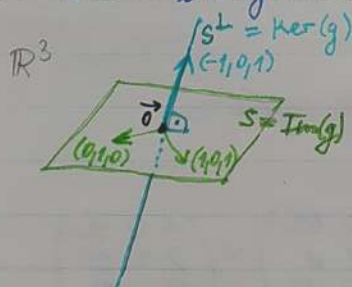 S⊥ = Ker(g)
ℝ³
(-1,0,1)
0⃗
S = Im(g)
(0,1,0)
(1,0,1)